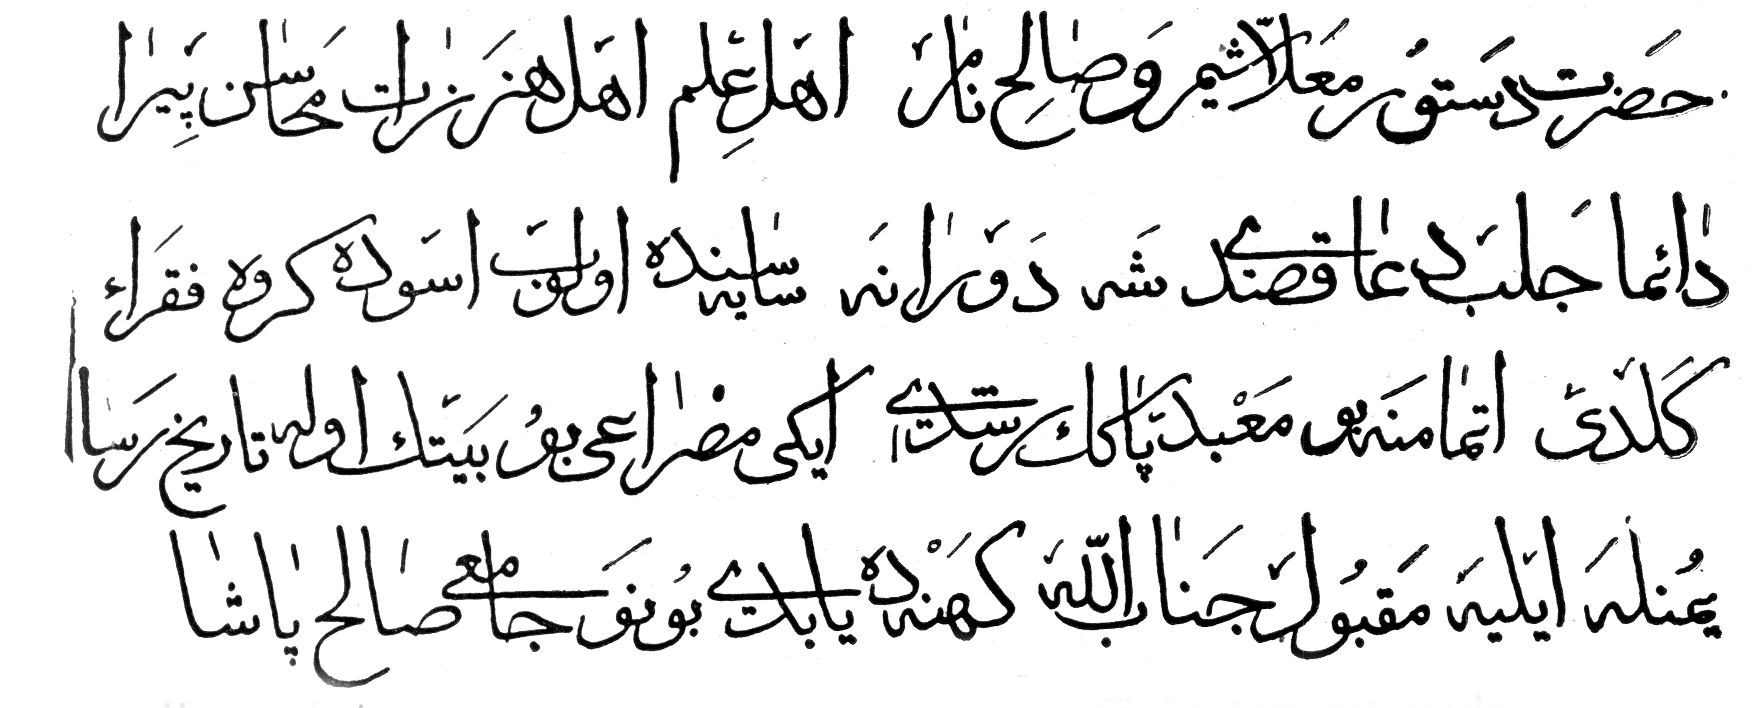 حضرت دستور معلا شیم و صالح نامدر اهل علم اهل هنر ذات محاسن پیرا
دائما جلب دعا قصدنده شه دورانه سایه سنده اولوب اسوده کروه فقرا
کلدی اتمامنه بو معبد پاکك رشدی ایکی مصراعی بو بیتك اوله تاریخ رسا
یمنله ایلیه مقبول جناب الله کهنه ده یابدی بو نو جامعی صالح پاشا